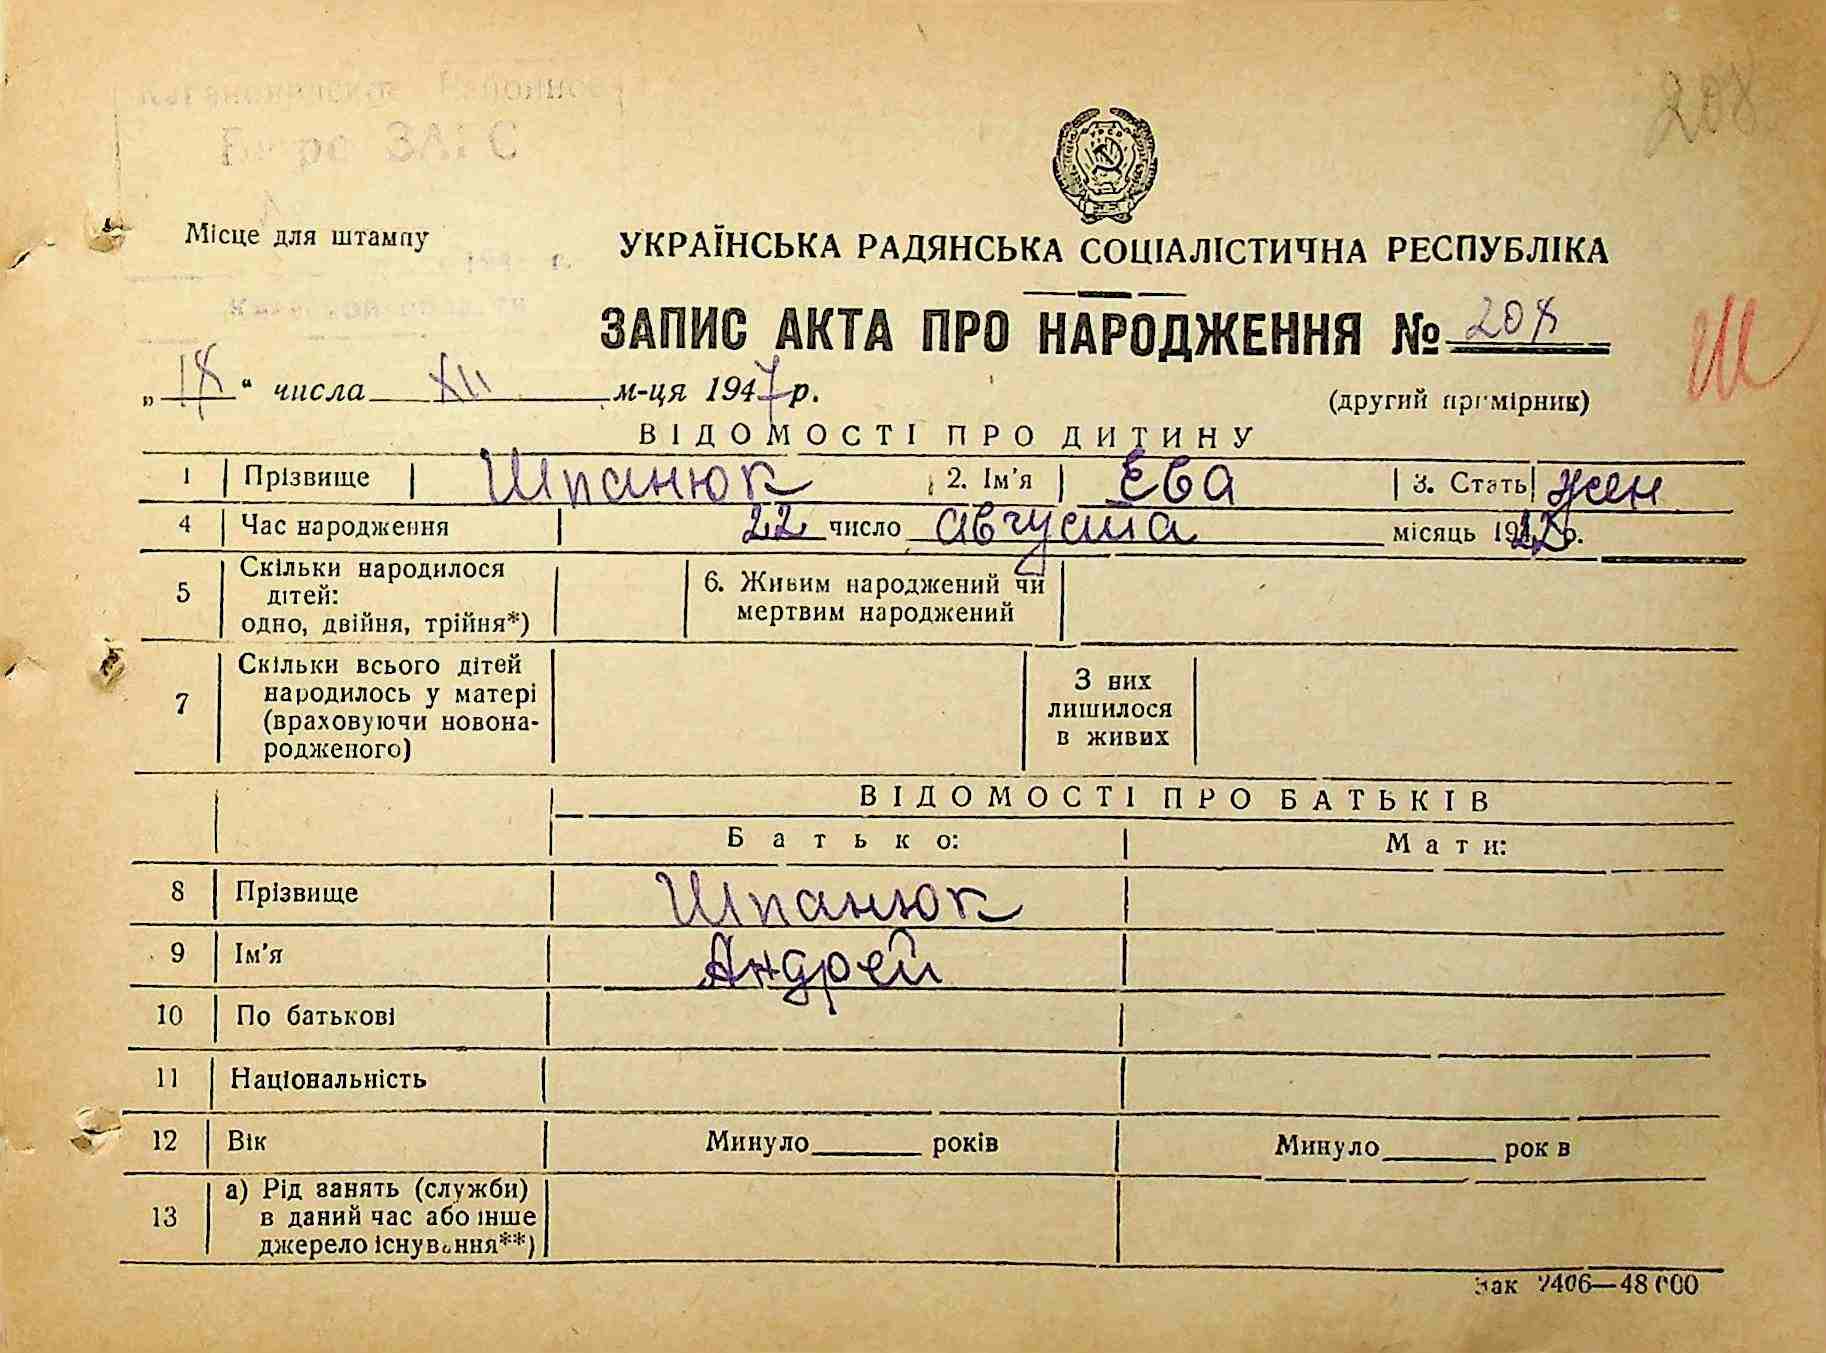 208
Бюро ЗАГС
Місце для штампу
УКРАЇНСЬКА РАДЯНСЬКА СОЦІАЛІСТИЧНА РЕСПУБЛІКА
ЗАПИС АКТА ПРО НАРОДЖЕННЯ № 208
Ш
„18“ числа XII м-ця 1947 р.
(другий примірник)
ВІДОМОСТІ ПРО ДИТИНУ
1 Прізвище Шпанюк 2. Ім'я Ева 3. Стать жен
4 Час народження 22 число августа місяць р.
5 Скільки народилося дітей: одно, двійня, трійня*) 6. Живим народжений чи мертвим народжений
7 Скільки всього дітей народилось у матері (враховуючи новона-родженого) З них лишилося в живих
ВІДОМОСТІ ПРО БАТЬКІВ
Батько: Мати:
8 Прізвище Шпанюк
9 Ім'я Андрей
10 По батькові
11 Національність
12 Вік Минуло років Минуло рок в
13 а) Рід занять (служби) в даний час або інше джерело існування**)
Зак 2406—48 000